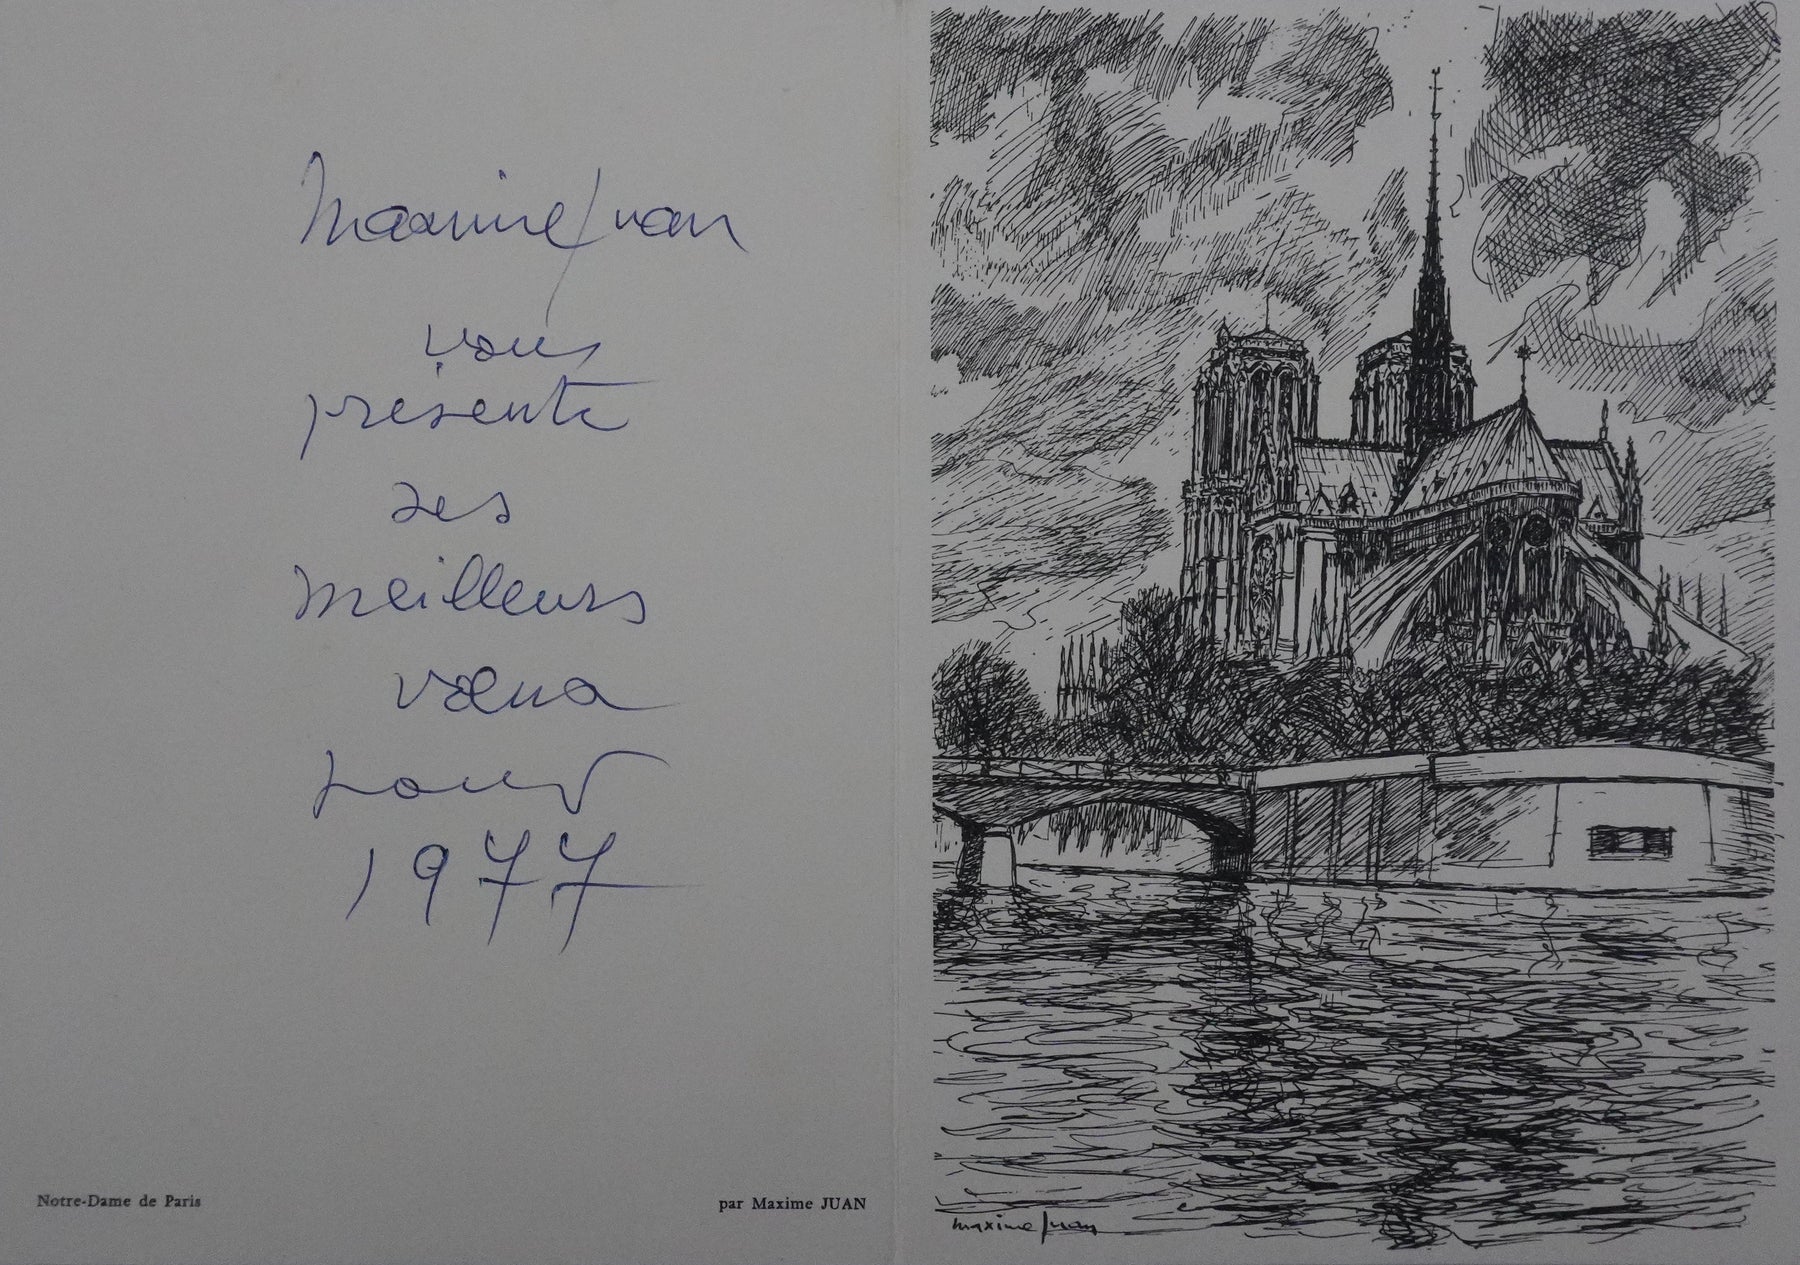 Maxime Juan
vous
présente
ses
meilleurs
vœux
pour
1977
Notre-Dame de Paris
par Maxime JUAN
maxime Juan